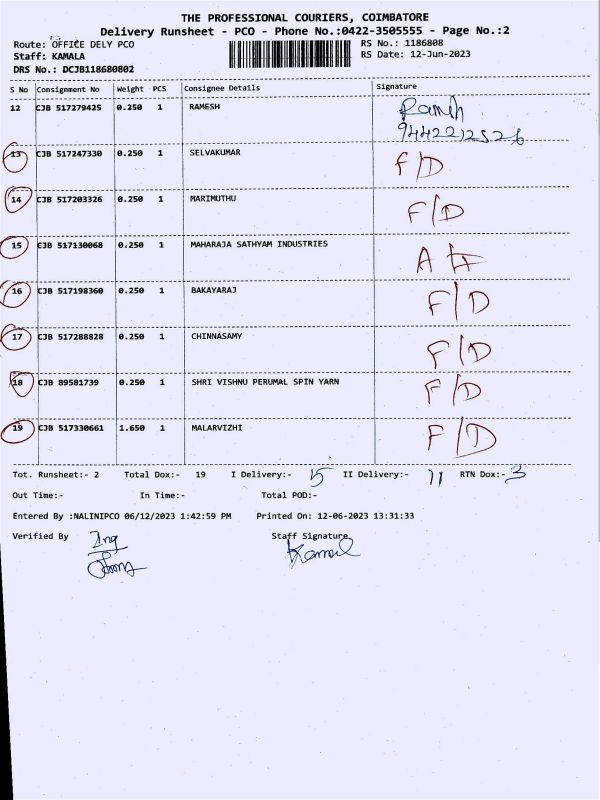 THE PROFESSIONAL COURIERS, COIMBATORE
Delivery Runsheet - PCO - Phone No.:0422-3505555 - Page No.:2
Route: OFFICE DELY PCO RS No.: 1186808
Staff: KAMALA RS Date: 12-Jun-2023
DRS No.: DCJB118680802
S No Consignment No Weight PCS Consignee Details Signature
12 CJB 517279425 0.250 1 RAMESH Ramesh
13 CJB 517247330 0.250 1 SELVAKUMAR F/D
14 CJB 517203326 0.250 1 MARIMUTHU F/D
15 CJB 517130068 0.250 1 MAHARAJA SATHYAM INDUSTRIES
16 CJB 517198360 0.250 1 BAKAYARAJ F/D
17 CJB 517288828 0.250 1 CHINNASAMY F/D
18 CJB 89581739 0.250 1 SHRI VISHNU PERUMAL SPIN YARN F/D
19 CJB 517330661 1.650 1 MALARVIZHI F/D
Tot. Runsheet:- 2 Total Dox:- 19 I Delivery:- 5 II Delivery:- 11 RTN Dox:- 3
Out Time:- In Time:- Total POD:-
Entered By :NALINIPCO 06/12/2023 1:42:59 PM Printed On: 12-06-2023 13:31:33
Verified By Staff Signature